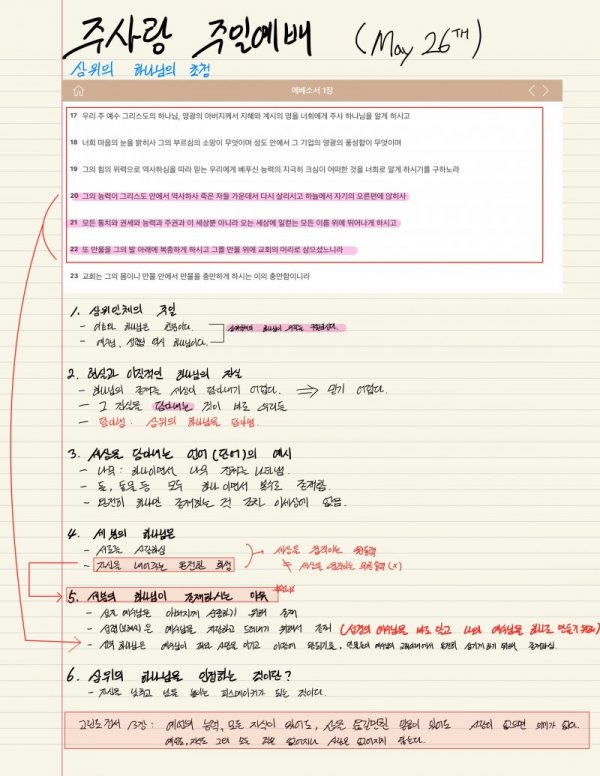 주사랑 주일예배 (May 26TH)
삼위의 하나님의 초청
에베소서 1장
17 우리 주 예수 그리스도의 하나님, 영광의 아버지께서 지혜와 계시의 영을 너희에게 주사 하나님을 알게 하시고
18 너희 마음의 눈을 밝히사 그의 부르심의 소망이 무엇이며 성도 안에서 그 기업의 영광의 풍성함이 무엇이며
19 그의 힘의 위력으로 역사하심을 따라 믿는 우리에게 베푸신 능력의 지극히 크심이 어떠한 것을 너희로 알게 하시기를 구하노라
20 그의 능력이 그리스도 안에서 역사하사 죽은 자들 가운데서 다시 살리시고 하늘에서 자기의 오른편에 앉히사
21 모든 통치와 권세와 능력과 주권과 이 세상뿐 아니라 오는 세상에 일컫는 모든 이름 위에 뛰어나게 하시고
22 또 만물을 그의 발 아래에 복종하게 하시고 그를 만물 위에 교회의 머리로 삼으셨느니라
23 교회는 그의 몸이니 만물 안에서 만물을 충만하게 하시는 이의 충만함이니라
1. 삼위일체의 주일
- 하나님은
- 예수님, 성령님 역시 하나님이다.
2. 현실과 이질적인 하나님의 진실
- 하나님의 존재는 세상이 담아내기 어렵다. ⇒ 믿기 어렵다.
- 그 진실을 담아내는 것이 바로 우리들
- 담아냄 : 삼위의 하나님을 담아냄.
3. 사실을 담아내는 언어 (단어)의 예시
- 나무 : 하나이면서 나무 전체를 나타냄.
- 돌, 동물 등 모두 하나이면서 복수로 존재함.
- 온전히 하나만 존재하는 것 조차 이세상에 없음.
4. 세 분의 하나님은
- 서로를 사랑하심
- 자신을 내어주는 온전한 희생
세상을 움직이는 원동력
세상을 움직이는 (X)
5. 세분의 하나님이 존재하시는 이유
- 예수님은 아버지께 하기 위해 존재
- 성령 은 예수님을 하고 드러내기 위해서 존재
6. 삼위의 하나님을 인정하는 것이란?
- 자신을 낮추고 남을 높이는 피스메이커가 되는 것이다.
고린도전서 13장 : 예언의 능력, 모든 지식이 있어도, 산을 옮길만한 믿음이 있어도 사랑이 없으면 의미가 없다.